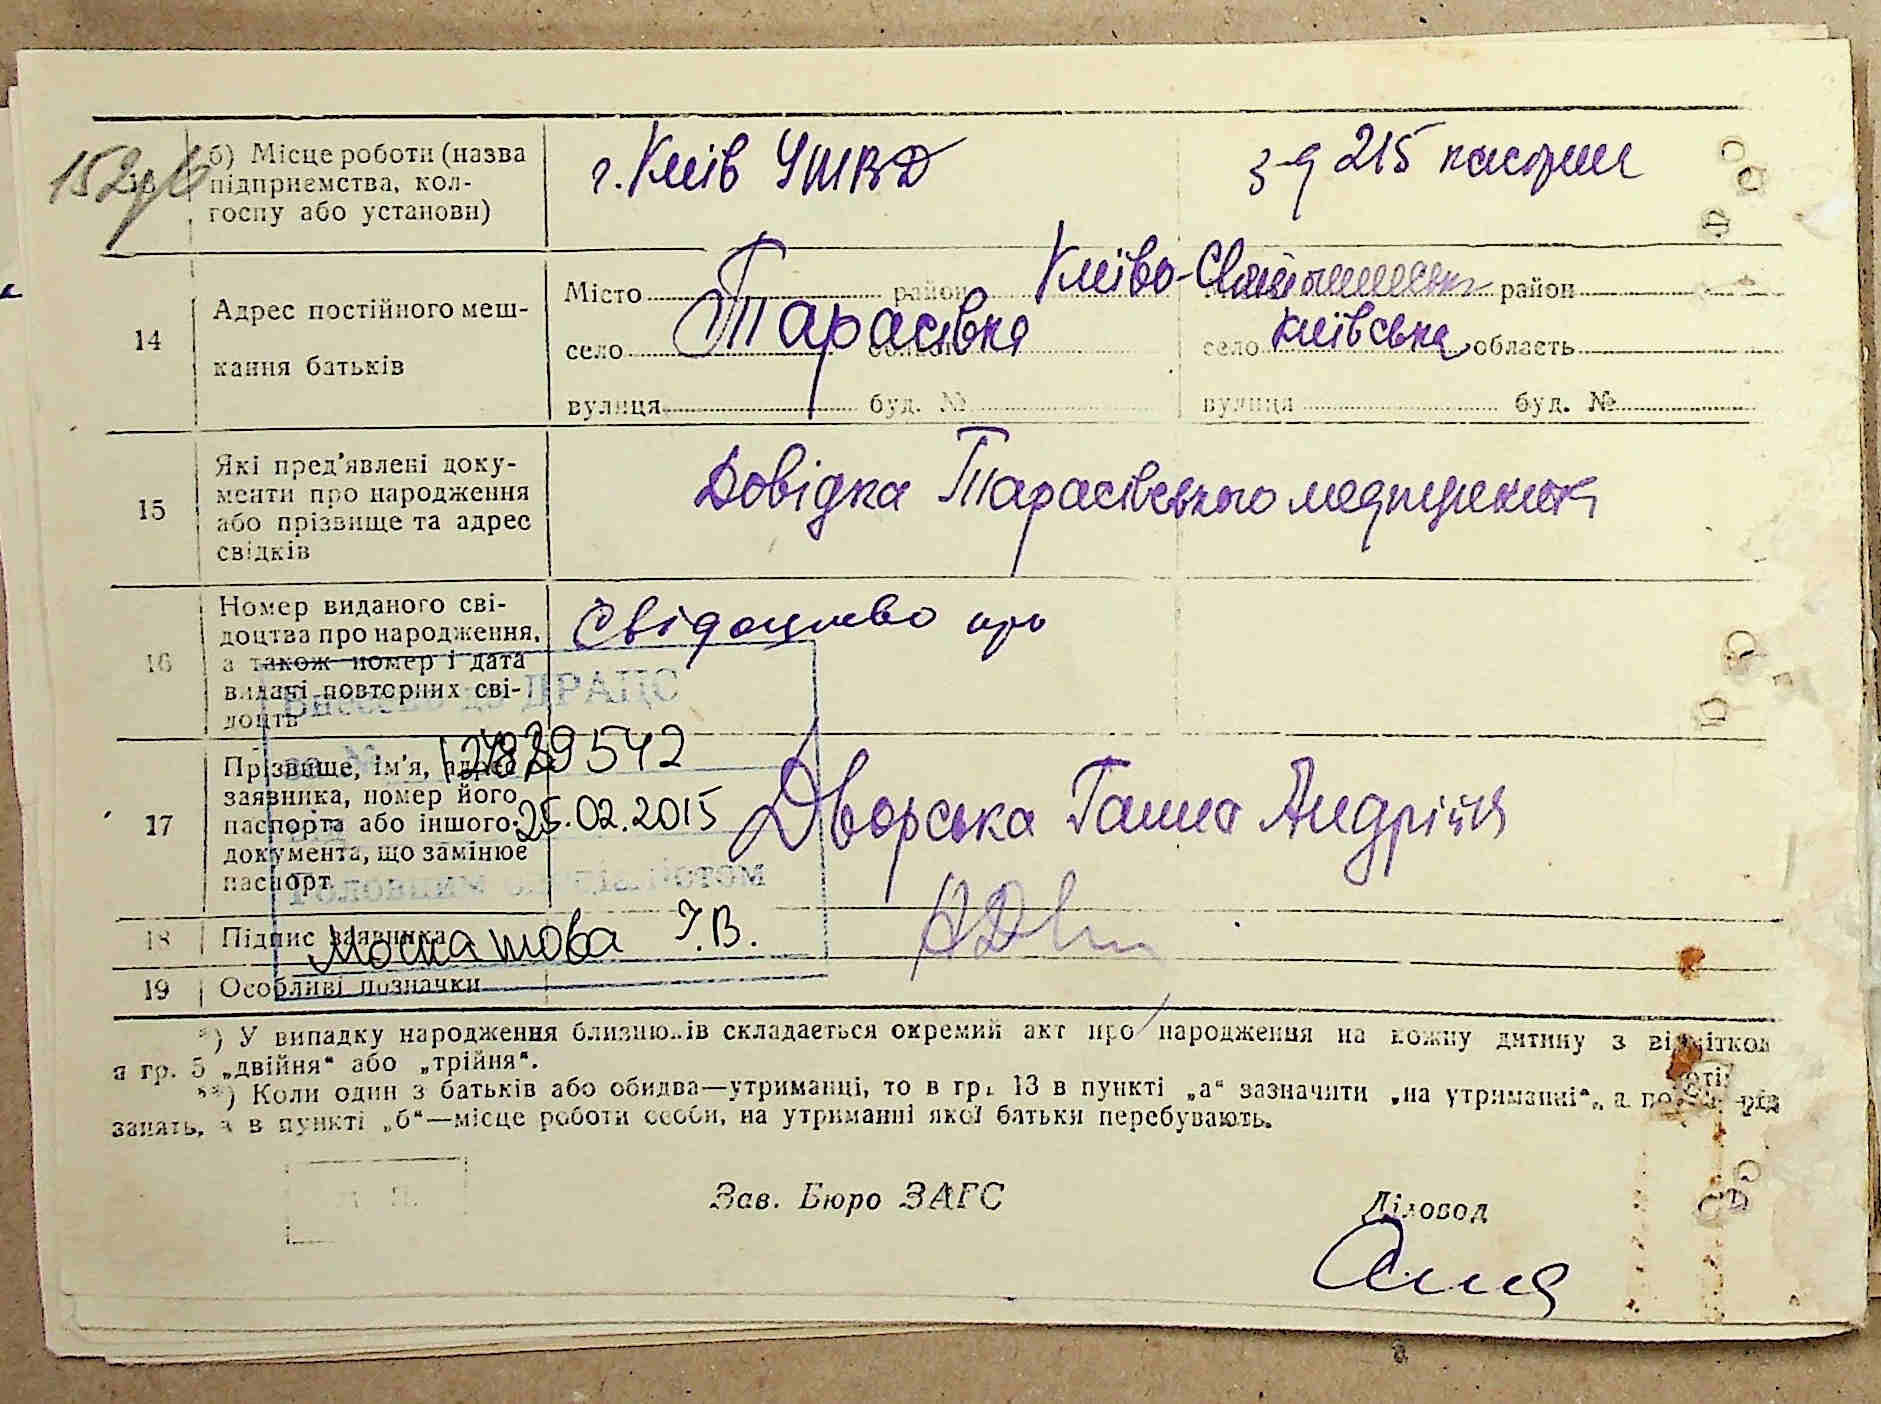 б) Місце роботи (назва
підприємства, кол-
госпу або установи)
г. Київ УШВД
з-д 215
14
Адрес постійного меш-
кання батьків
Місто район Києво- район
село Тарасівка село Київська область
вулиця буд. № вулиця буд. №
15
Які пред'явлені доку-
менти про народження
або прізвище та адрес
свідків
Довідка Тарасівського медпункта
16
Номер виданого сві-
доцтва про народження,
а також номер і дата
видачі повторних сві-
доцтв
Свідоцтво про
Внесено до ДРАЦС
25.02.2015
Головним спеціалістом
17
Прізвище, ім'я, адрес
заявника, номер його
паспорта або іншого
документа, що замінює
паспорт
Дворська Ганна Андрій
18
Підпис заявника
І.В.
19
Особливі позначки
*) У випадку народження близнюків складається окремий акт про народження на кожну дитину з відміткою
в гр. 5 „двійня“ або „трійня“.
**) Коли один з батьків або обидва—утриманці, то в гр. 13 в пункті „а“ зазначити „на утриманні“, а рід
занять, а в пункті „б“—місце роботи особи, на утриманні якої батьки перебувають.
Зав. Бюро ЗАГС
Діловод